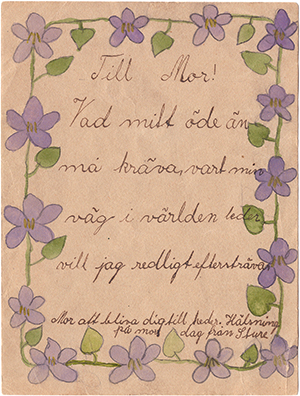 Till Mor!
Vad mitt öde än
må kräva, vart min
väg i världen leder
vill jag redligt eftersträva
Mor att bliva dig till heder. Hälsning
på mors dag från Sture!